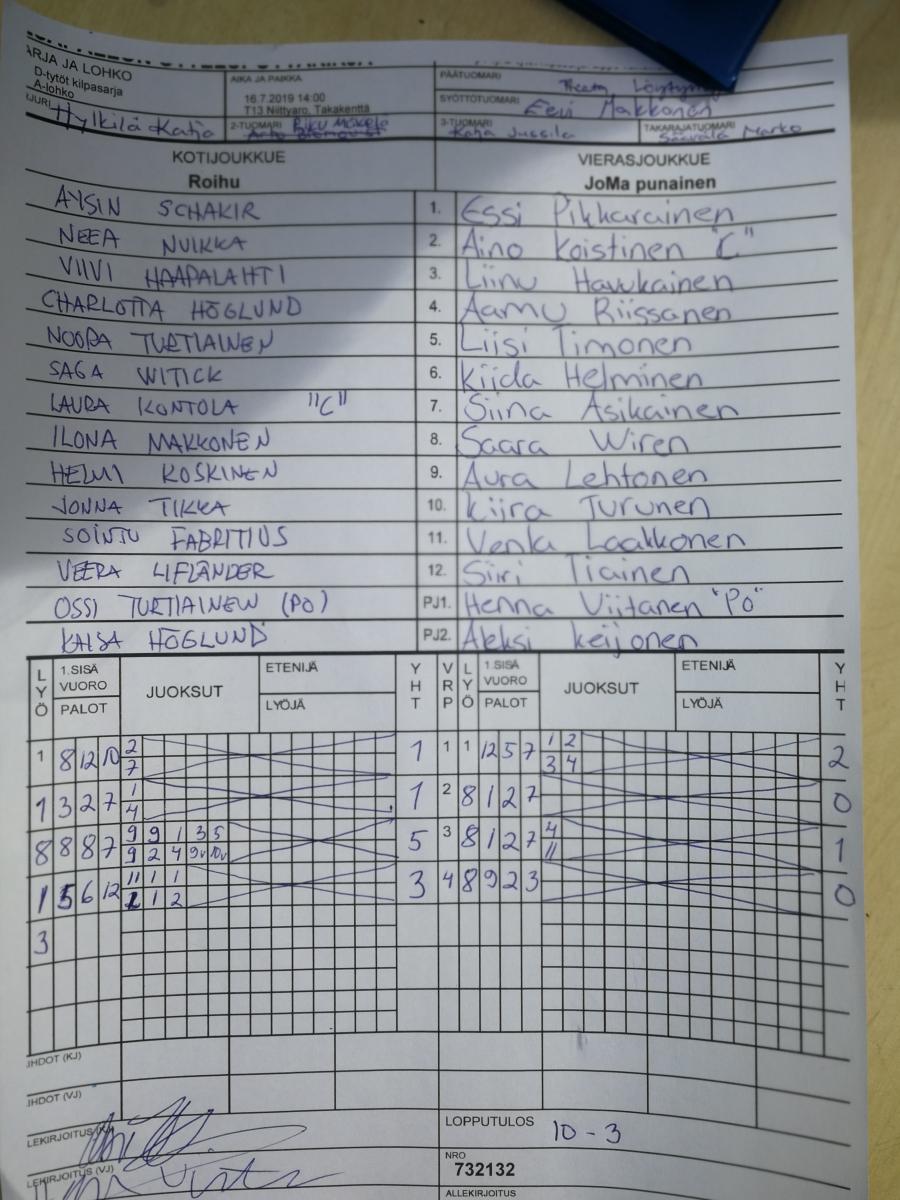 ARJA JA LOHKO
D-tytöt kilpasarja
A-lohko
AIKA JA PAIKKA
16.7.2019 14:00
T13 Niittyaro, Takakenttä
PÄÄTUOMARI
SYÖTTÖTUOMARI Eevi Makkonen
Hylkilä Katja
2-TUOMARI Riku Mäkelä
3-TUOMARI Katja Jussila
TAKARAJATUOMARI Säävälä Marko
KOTIJOUKKUE VIERASJOUKKUE
Roihu JoMa punainen
AYSIN SCHAKIR 1. Essi Pikkarainen
NEEA NUIKKA 2. Aino Koistinen "C"
VIIVI HAAPALAHTI 3. Liinu Havukainen
CHARLOTTA HÖGLUND 4. Aamu Riissanen
NOORA TURTIAINEN 5. Liisi Timonen
SAGA WITICK 6. Kiida Helminen
LAURA KONTOLA "C" 7. Siina Asikainen
ILONA MAKKONEN 8. Saara Wiren
HELMI KOSKINEN 9. Aura Lehtonen
JONNA TIKKA 10. Kiira Turunen
SOINTU FABRITIUS 11. Venla Laakkonen
VEERA LIFLÄNDER 12. Siiri Tiainen
OSSI TURTIAINEN (PO) PJ1. Henna Viitanen "PO"
KAISA HÖGLUND PJ2. Aleksi Keijonen
LYÖ 1.SISÄ VUORO PALOT JUOKSUT ETENIJÄ LYÖJÄ YHT VRP LYÖ 1.SISÄ VUORO PALOT JUOKSUT ETENIJÄ LYÖJÄ YHT
1 8 12 10 2 1 1 1 12 5 7 1 2 2
7 3 4
1 3 2 7 1 1 2 8 1 2 7 0
4
8 8 8 7 9 9 1 3 5 5 3 8 1 2 7 4 1
9 2 4 9v 10v 11
1 5 6 12 11 1 1 3 4 8 9 2 3 0
1 2
3
JHDOT (KJ)
JHDOT (VJ)
LEKIRJOITUS (KJ)
LOPPUTULOS 10 - 3
LEKIRJOITUS (VJ)
NRO
732132
ALLEKIRJOITUS